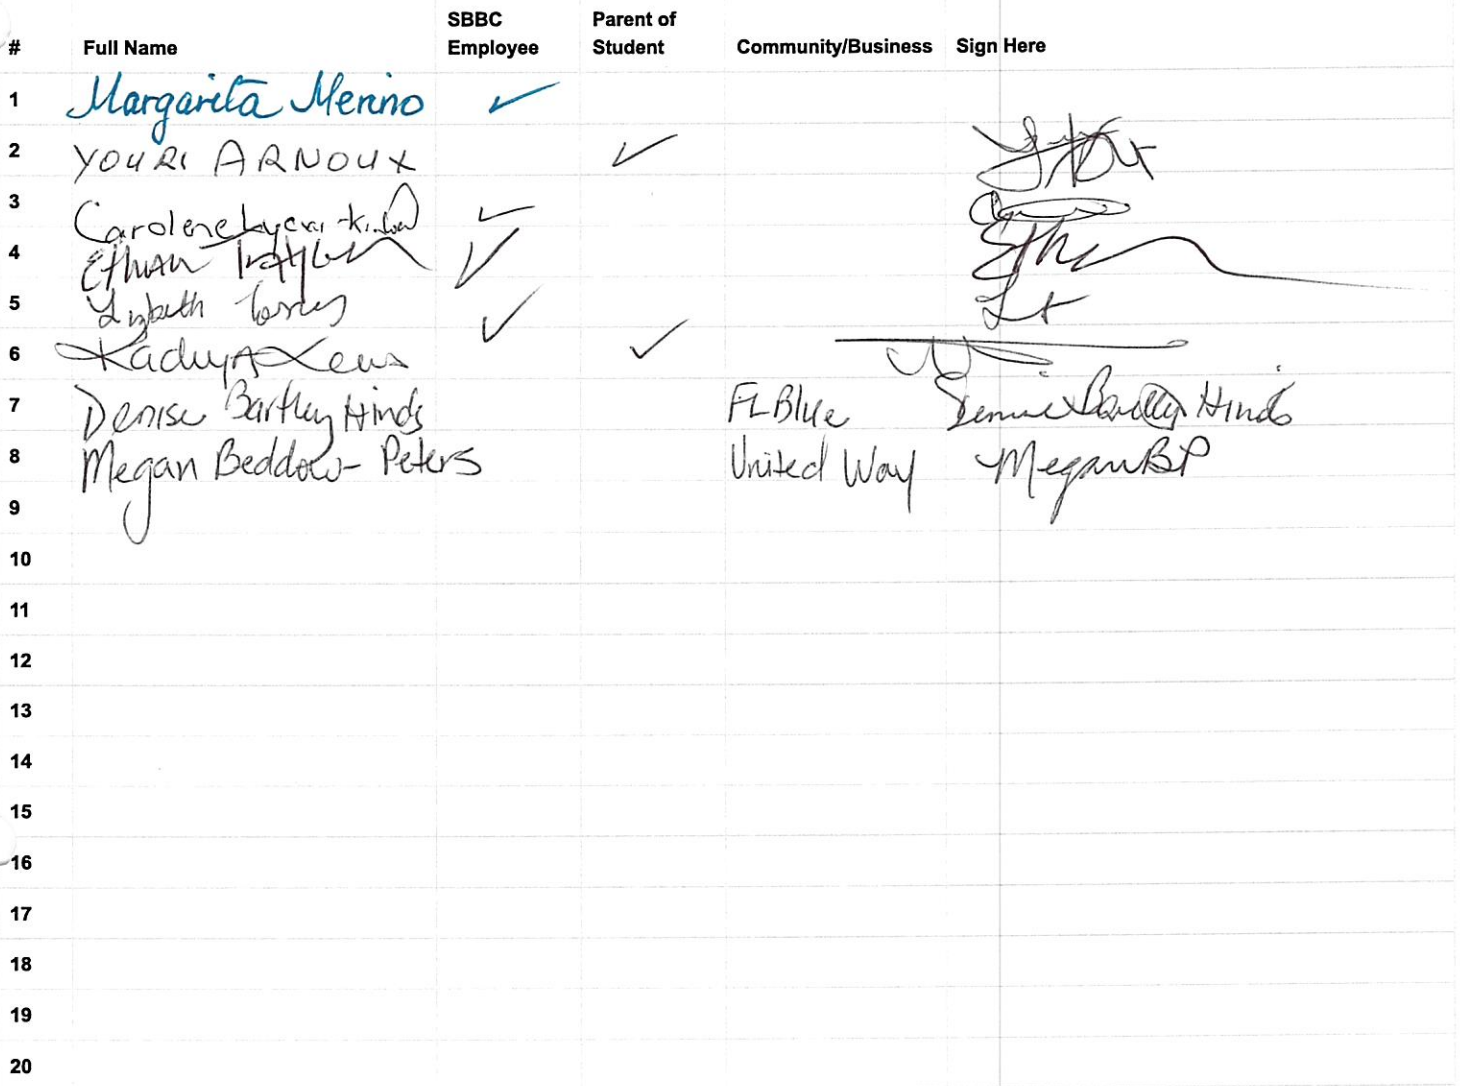 # Full Name SBBC Employee Parent of Student Community/Business Sign Here
1 Margarita Merino ✓
2 YOURI ARNOUX ✓
3 Carolene ✓
4 Ethan ✓
5 Lizbeth Torres ✓
6 ✓
7 Denise Bartley Hinds FL Blue Denise Bartley Hinds
8 Megan Beddow-Peters United Way MeganBP
9
10
11
12
13
14
15
16
17
18
19
20